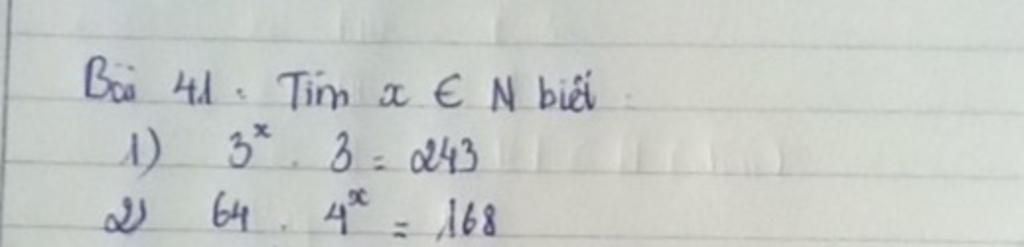 Bài 41. Tìm x ∈ N biết
1) 3ˣ . 3 = 243
2) 64 . 4ˣ = 168